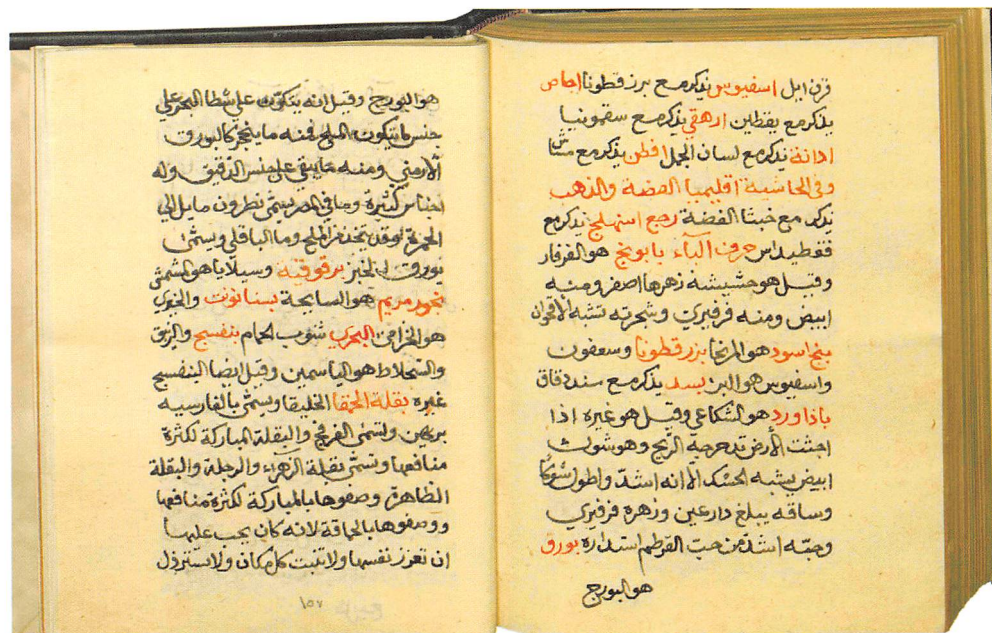 قرن ايل اسفيوس يذكر مع بزرقطونا اجاص
يذكر مع يقطين ارهقي يذكر مع سقمونيا
اذانة يذكر مع لسان الجمل افطن يذكر مع
وفي الحاشية اقليميا الفضة والذهب
يذكر مع خبث الفضة رجع اسهلج يذكر مع
حرف الباء بابونج هو القرفار
وقيل هو حشيشه زهرها اصفر ومنه
ابيض ومنه فرفيري وشجرته تشبه الاقحوان
بنج اسود هو المرنحا بزرقطونا وسعفون
واسفيوس هو البزر بسد يذكر مع سندد قاق
باذاورد هو الشكاعى وقيل هو غيره اذا
اجتث الأرض تدحرجة الريح وهو شوك
ابيض يشبه الحسك الا انه اشد واطول شوكا
وساقه يبلغ دارعين وزهره فرفيري
وحبه اشد من حب القرطم استداره بورق
هو البورج
هو البورج وقيل انه يتكون على شطا البحر على
جنس ما يتكون الملح فمنه ما ينجر كالبورق
الأرمني ومنه ما يبقى على جنس الدقيق وله
اجناس كثيرة وما في المصر يسمى نطرون مايل الى
الحمرة وقد يتخذ من الملح وما الباقلى ويسمى
بورق الخبز برقوقية وسيلايا هو المشمش
بخور مريم هو السابحة بستانوت والخيري
هو الخزامى البحري شنوب الحمام بنفسج والزبق
والسجلاط هو الياسمين وقيل ايضا البنفسج
غيره بقلة الحمقا الخليقا ويسمى بالفارسيه
بربهن ولتسمى الفرفح والبقلة المباركة لكثرة
منافعها وتسمى بقلة الزهراء والرجلة والبقلة
الظاهرة وصفوها بالمباركة لكثرة منافعها
ووصفوها بالحماقة لانه كان يجب عليها
ان تعزز نفسها ولا تنبت كل مكان ولا تسترذل
١٥٧